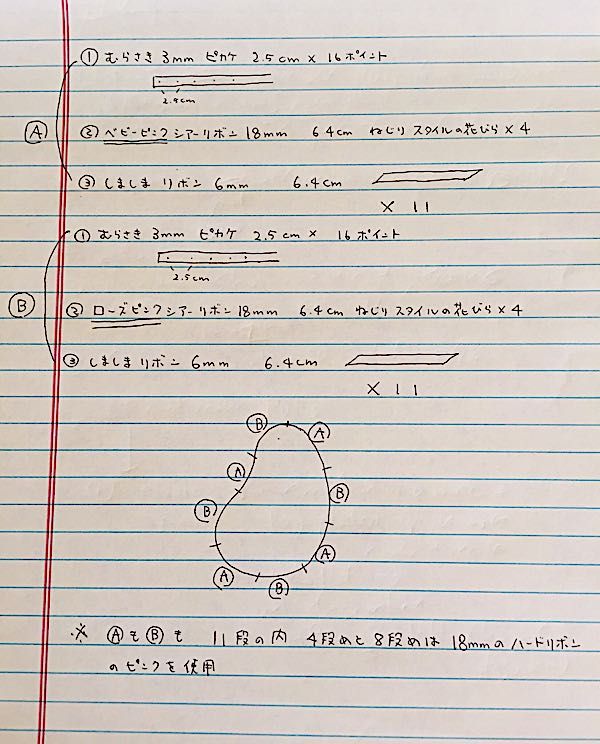 ① むらさき 3mm ピカケ 2.5cm × 16ポイント
2.5cm
Ⓐ ② ベビーピンクシアーリボン 18mm 6.4cm ねじりスタイルの花びら×4
③ しましまリボン 6mm 6.4cm
× 11
① むらさき 3mm ピカケ 2.5cm × 16ポイント
2.5cm
Ⓑ ② ローズピンクシアーリボン 18mm 6.4cm ねじりスタイルの花びら×4
③ しましまリボン 6mm 6.4cm
× 11
Ⓑ Ⓐ
Ⓐ
Ⓑ Ⓑ
Ⓐ Ⓐ
Ⓑ
※ ⒶもⒷも 11段の内 4段めと8段めは 18mmのハードリボン
のピンクを使用